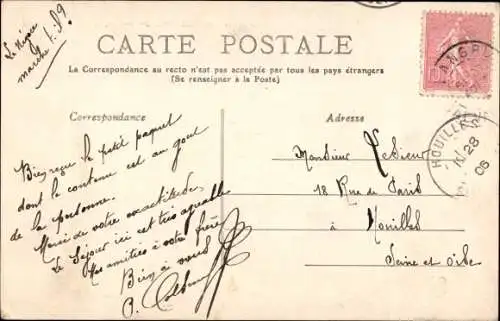 Le Nègre
marche t.s.?
CARTE POSTALE
La Correspondance au recto n'est pas acceptée par tous les pays étrangers
(Se renseigner à la Poste)
Correspondance
Bien reçu le petit paquet
dont le contenu est au gout
de la personne.
Merci de votre exactitude
Le Séjour ici est très agréable
Mes amitiés à votre frère
Bien à vous
Adresse
Monsieur
18 Rue de Paris
à Houilles
Seine et Oise
10
HOUILLES
28
06